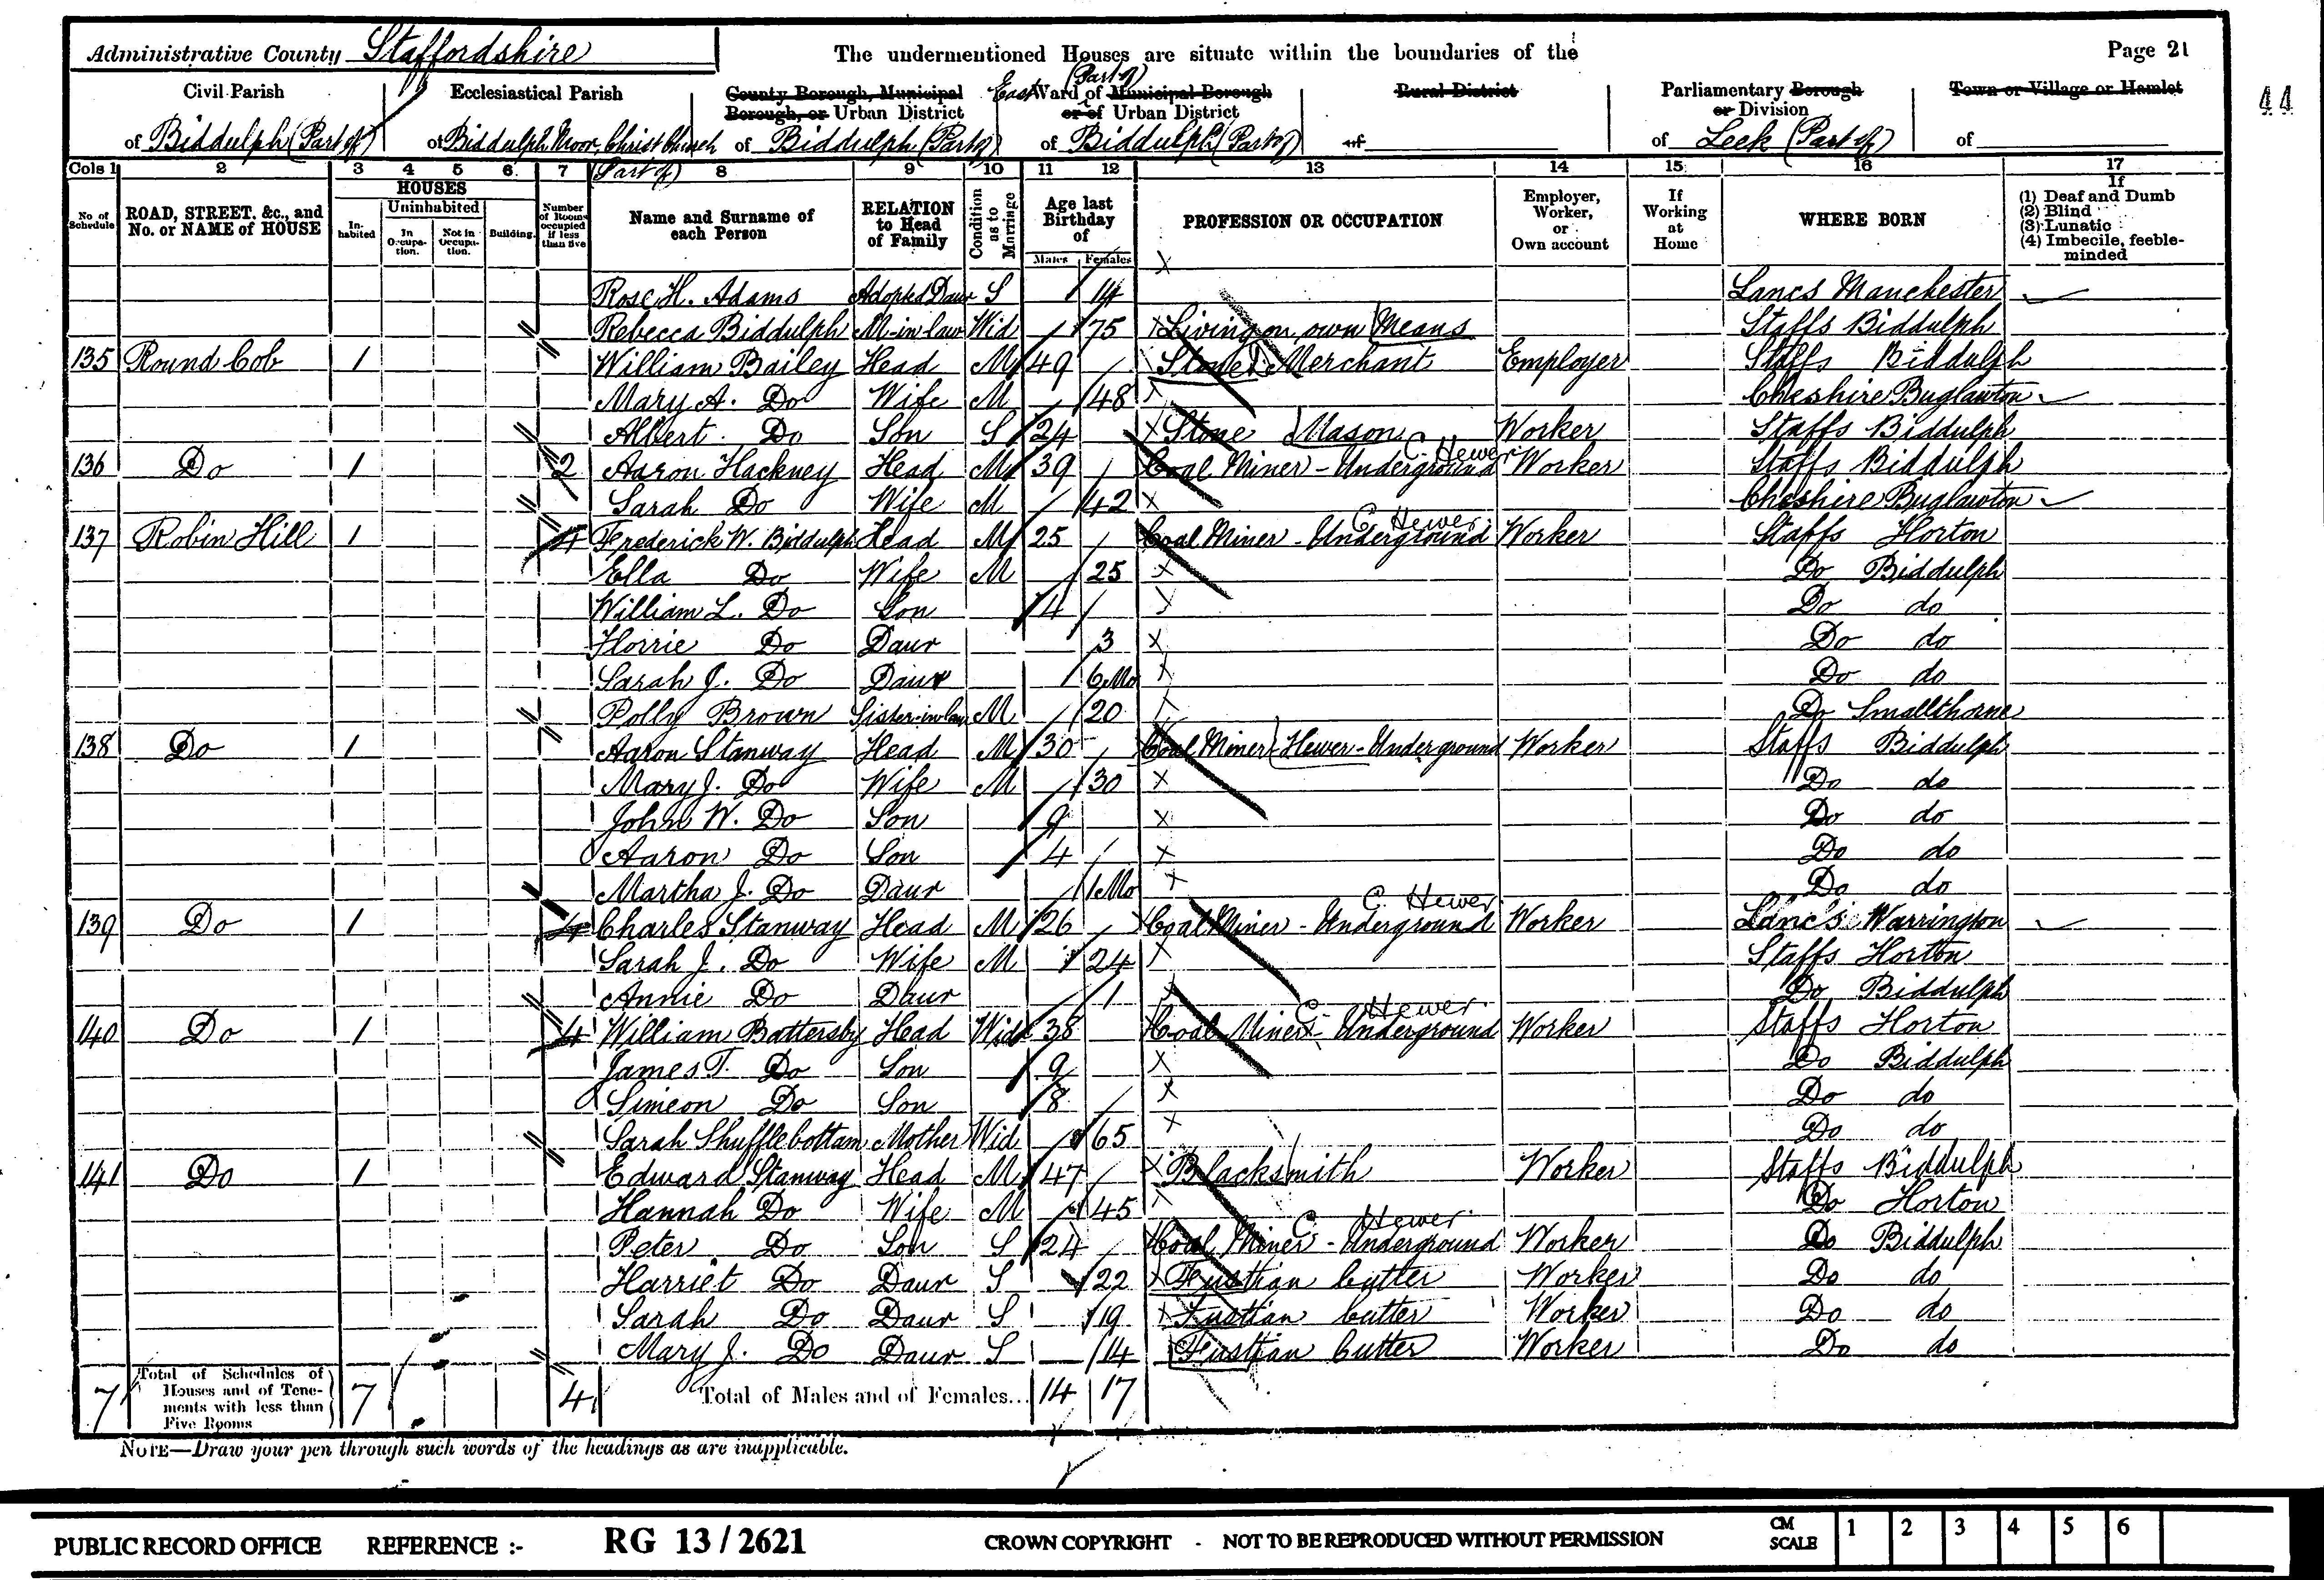 Administrative County Staffordshire The undermentioned Houses are situate within the boundaries of the Page 21
44
Civil Parish of Biddulph (Part of)
Ecclesiastical Parish of Biddulph Moor, Christ Church (Part of)
County Borough, Municipal Borough, or Urban District of Biddulph (Part of)
East (Part of) Ward of Municipal Borough or of Urban District of Biddulph (Part of)
Rural District of
Parliamentary Borough or Division of Leek (Part of)
Town or Village or Hamlet of
Cols 1 2 3 4 5 6 7 8 9 10 11 12 13 14 15 16 17
No of Schedule
ROAD, STREET, &c., and No. or NAME of HOUSE
HOUSES
Inhabited
Uninhabited
In Occupation.
Not in Occupation.
Building.
Number of Rooms occupied if less than five
Name and Surname of each Person
RELATION to Head of Family
Condition as to Marriage
Age last Birthday of
Males Females
PROFESSION OR OCCUPATION
Employer, Worker, or Own account
If Working at Home
WHERE BORN
If
(1) Deaf and Dumb
(2) Blind
(3) Lunatic
(4) Imbecile, feeble-minded
Rose H. Adams Adopted Daur S 14 Lancs Manchester
Rebecca Biddulph M-in-law Wid 75 Living on own Means Staffs Biddulph
135 Round Cob 1 William Bailey Head M 49 Stone Merchant Employer Staffs Biddulph
Mary A. Do Wife M 48 Cheshire Buglawton
Albert Do Son S 24 Stone Mason Worker Staffs Biddulph
136 Do 1 2 Aaron Hackney Head M 39 Coal Miner - Underground C. Hewer Worker Staffs Biddulph
Sarah Do Wife M 42 Cheshire Buglawton
137 Robin Hill 1 4 Frederick W. Biddulph Head M 25 Coal Miner - Underground C. Hewer Worker Staffs Horton
Ella Do Wife M 25 Do Biddulph
William L. Do Son 4 Do do
Florrie Do Daur 3 Do do
Sarah J. Do Daur 6 Mo Do do
Polly Brown Sister-in-law M 20 Do Smallthorne
138 Do 1 Aaron Stanway Head M 30 Coal Miner Hewer - Underground Worker Staffs Biddulph
Mary J. Do Wife M 30 Do do
John W. Do Son 9 Do do
Aaron Do Son 4 Do do
Martha J. Do Daur 1 Mo Do do
139 Do 1 4 Charles Stanway Head M 26 Coal Miner - Underground C. Hewer Worker Lancs Warrington
Sarah J. Do Wife M 24 Staffs Horton
Annie Do Daur 1 Do Biddulph
140 Do 1 4 William Battersby Head Widr 38 Coal Miner - Underground C. Hewer Worker Staffs Horton
James T. Do Son 9 Do Biddulph
Simeon Do Son 8 Do do
Sarah Shufflebottam Mother Wid 65 Do do
141 Do 1 Edward Stanway Head M 47 Blacksmith Worker Staffs Biddulph
Hannah Do Wife M 45 Do Horton
Peter Do Son S 24 Coal Miner - Underground C. Hewer Worker Do Biddulph
Harriet Do Daur S 22 Fustian Cutter Worker Do do
Sarah Do Daur S 19 Fustian Cutter Worker Do do
Mary J. Do Daur S 14 Fustian Cutter Worker Do do
7 Total of Schedules of Houses and of Tenements with less than Five Rooms 7 4 Total of Males and of Females... 14 17
NOTE—Draw your pen through such words of the headings as are inapplicable.
PUBLIC RECORD OFFICE REFERENCE :- RG 13 / 2621 CROWN COPYRIGHT - NOT TO BE REPRODUCED WITHOUT PERMISSION CM SCALE 1 2 3 4 5 6